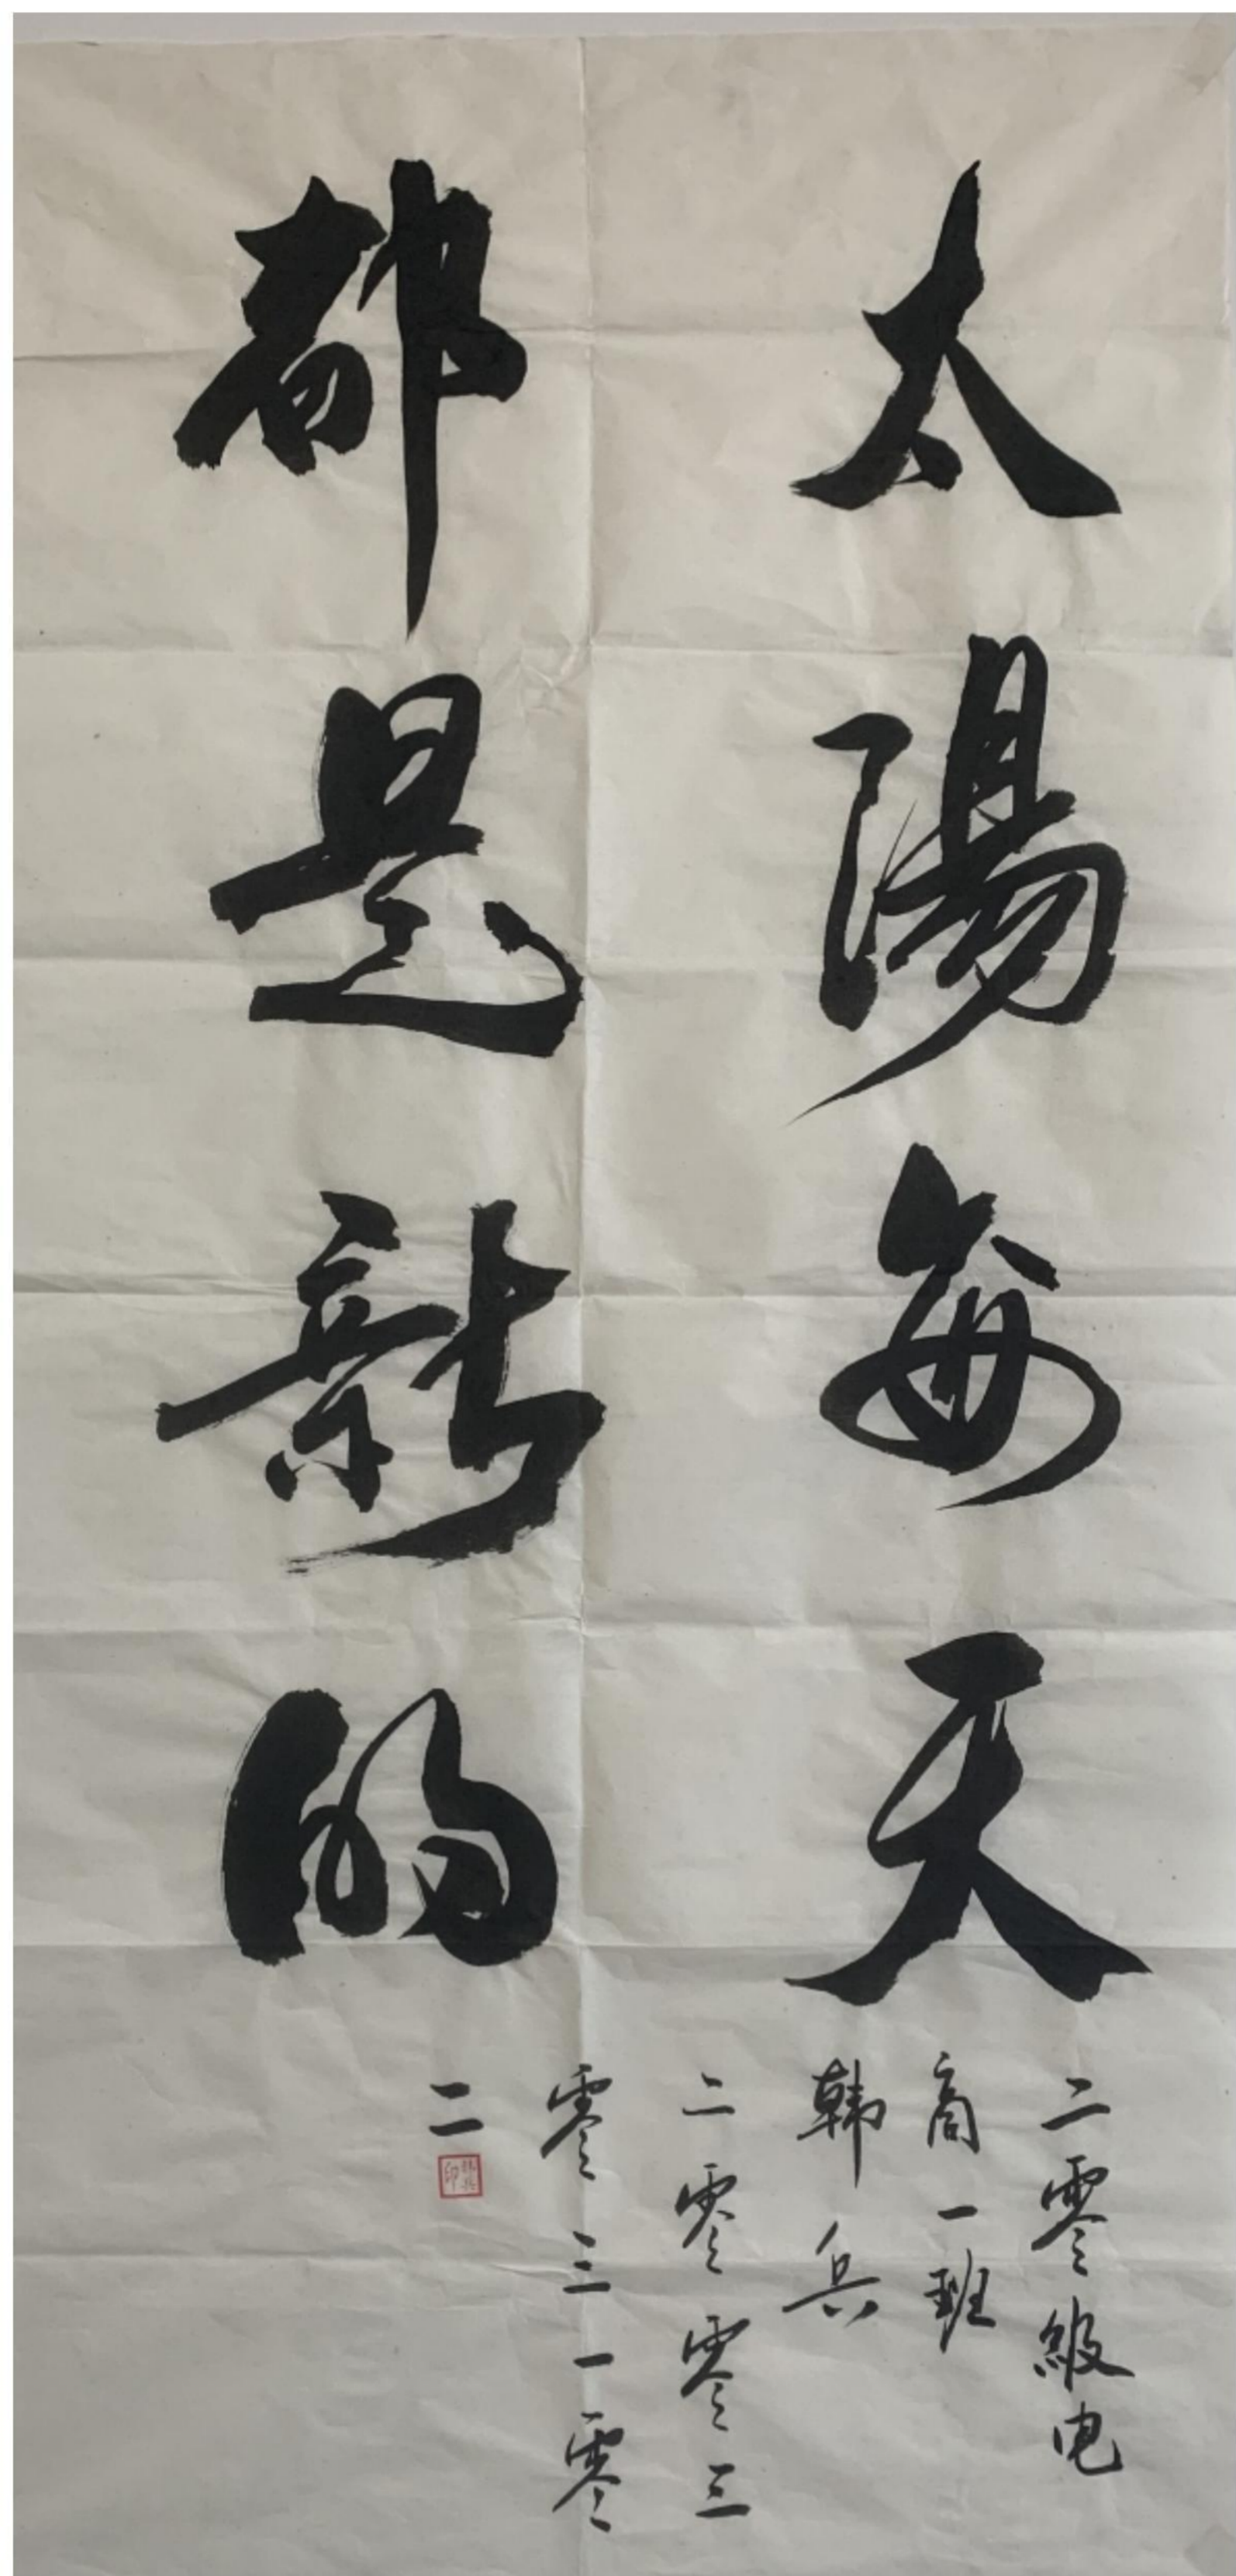 太陽每天
都是新的
二零級电
商一班
韩兵
二零零三
零三一零
二